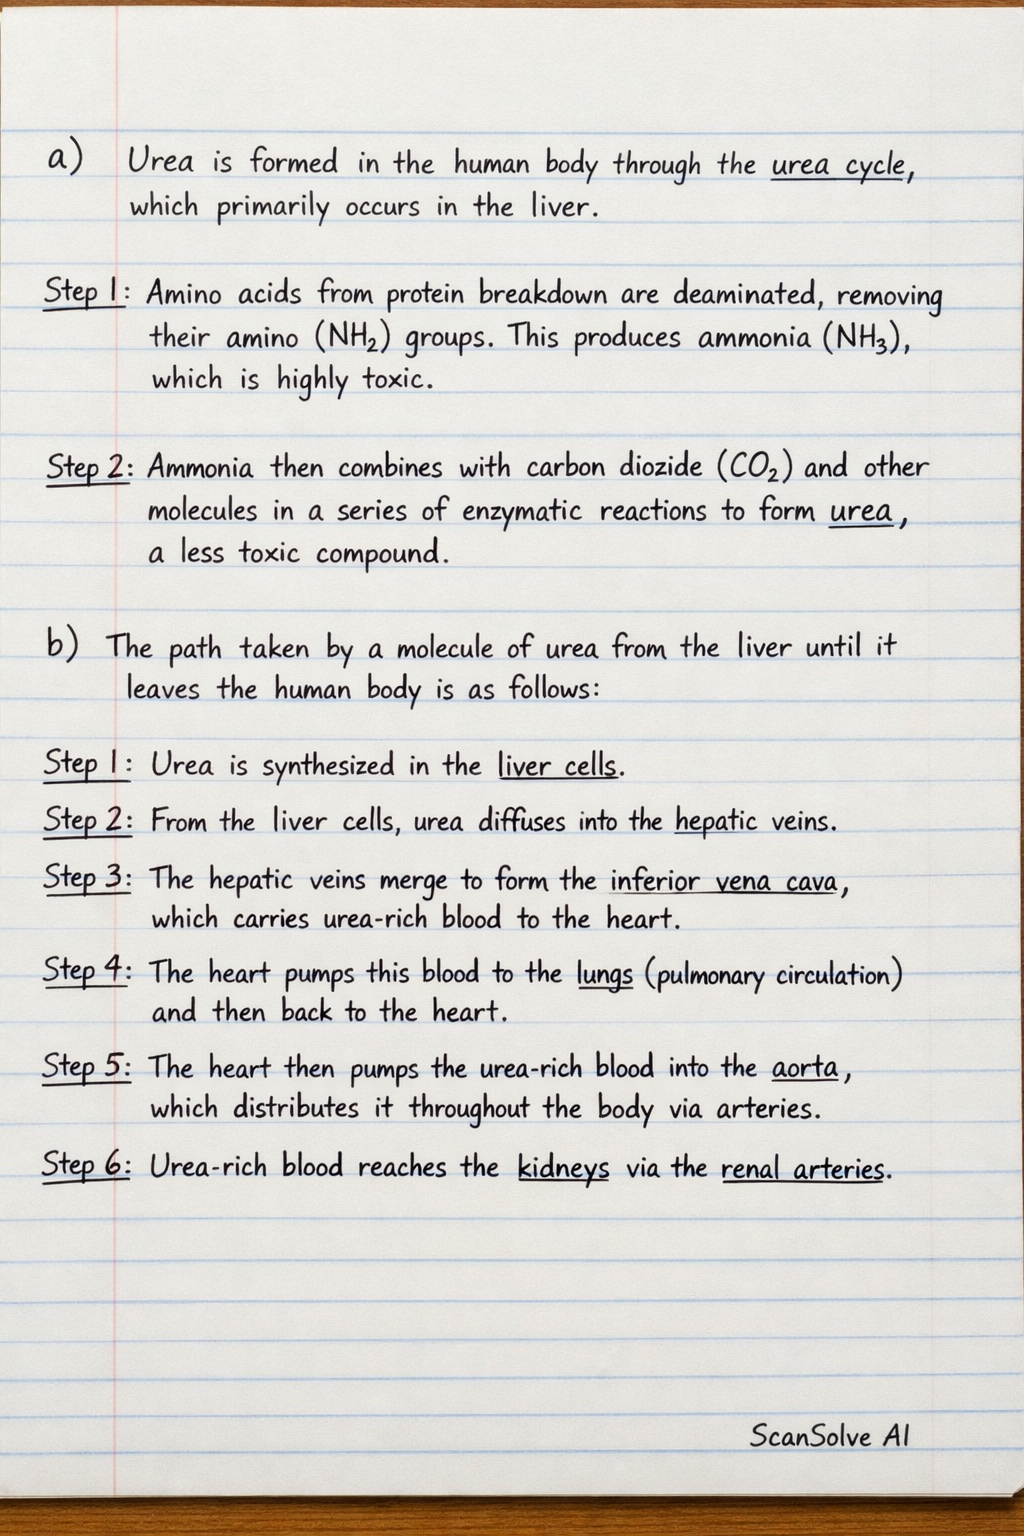 a) Urea is formed in the human body through the urea cycle,
which primarily occurs in the liver.
Step 1: Amino acids from protein breakdown are deaminated, removing
their amino (NH₂) groups. This produces ammonia (NH₃),
which is highly toxic.
Step 2: Ammonia then combines with carbon diozide (CO₂) and other
molecules in a series of enzymatic reactions to form urea,
a less toxic compound.
b) The path taken by a molecule of urea from the liver until it
leaves the human body is as follows:
Step 1: Urea is synthesized in the liver cells.
Step 2: From the liver cells, urea diffuses into the hepatic veins.
Step 3: The hepatic veins merge to form the inferior vena cava,
which carries urea-rich blood to the heart.
Step 4: The heart pumps this blood to the lungs (pulmonary circulation)
and then back to the heart.
Step 5: The heart then pumps the urea-rich blood into the aorta,
which distributes it throughout the body via arteries.
Step 6: Urea-rich blood reaches the kidneys via the renal arteries.
ScanSolve AI